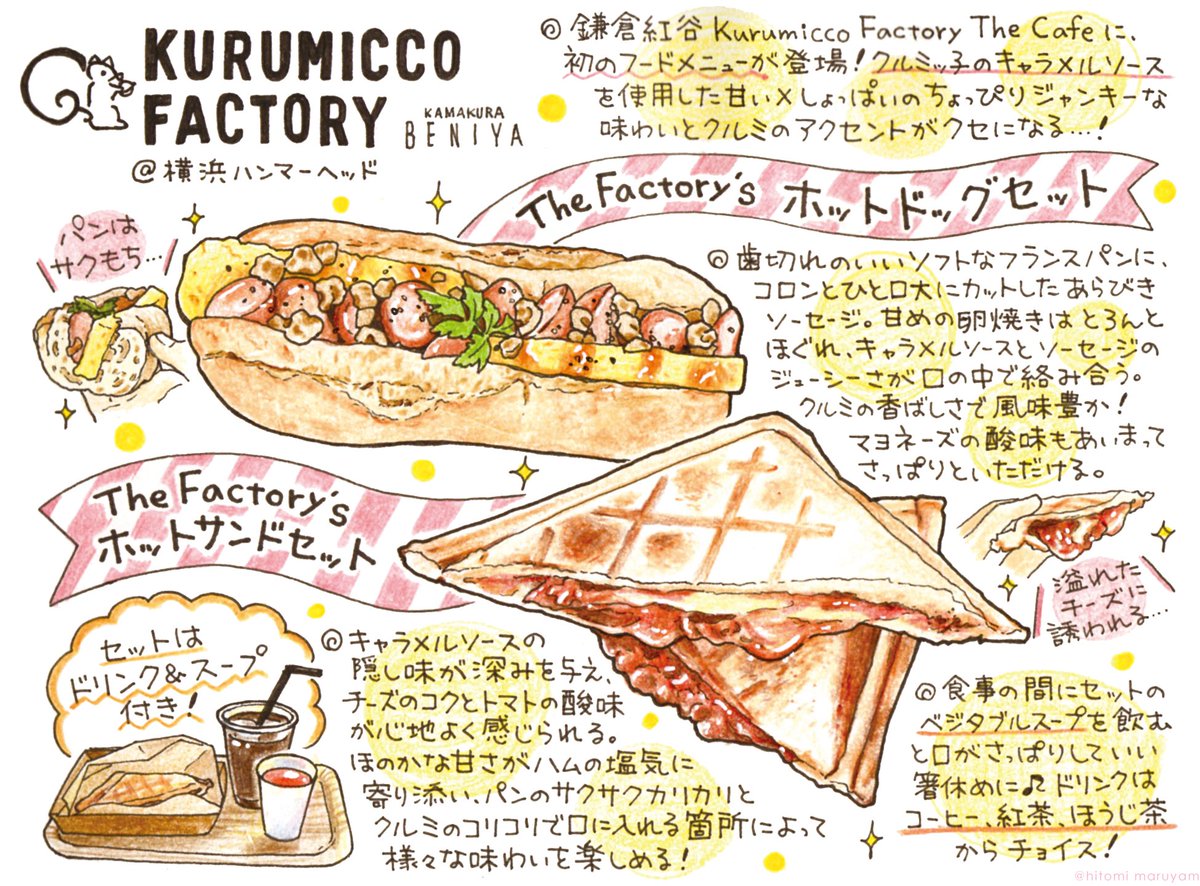 KURUMICCO
FACTORY
KAMAKURA
BENIYA
@横浜ハンマーヘッド
◎鎌倉紅谷 Kurumicco Factory The Cafeに、
初のフードメニューが登場!クルミッ子のキャラメルソース
を使用した甘い×しょっぱいのちょっぴりジャンキーな
味わいとクルミのアクセントがクセになる…!
The Factory's ホットドッグセット
パンは
サクもち…
◎歯切れのいいソフトなフランスパンに、
コロンとひと口大にカットしたあらびき
ソーセージ。甘めの卵焼きはとろんと
ほぐれ、キャラメルソースとソーセージの
ジューシーさが口の中で絡み合う。
クルミの香ばしさで風味豊か!
マヨネーズの酸味もあいまって
さっぱりといただける。
The Factory's
ホットサンドセット
溢れた
チーズに
誘われる…
セットは
ドリンク&スープ
付き!
◎キャラメルソースの
隠し味が深みを与え、
チーズのコクとトマトの酸味
が心地よく感じられる。
ほのかな甘さがハムの塩気に
寄り添い、パンのサクサクカリカリと
クルミのコリコリで口に入れる箇所によって
様々な味わいを楽しめる!
◎食事の間にセットの
ベジタブルスープを飲む
と口がさっぱりしていい
箸休めに♫ドリンクは
コーヒー、紅茶、ほうじ茶
からチョイス!
@hitomi maruyam